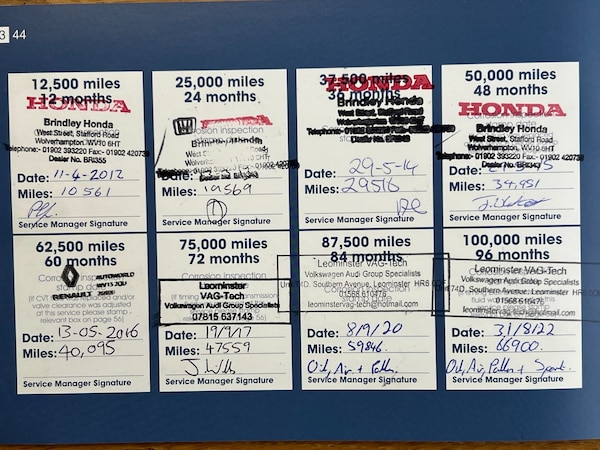 3 44
12,500 miles
12 months
HONDA
Brindley Honda
West Street, Stafford Road
Wolverhampton. WV10 6HT
Telephone:- 01902 393220 Fax:- 01902 420739
Dealer No. BRI355
Date: 11-4-2012
Miles: 10561
Service Manager Signature
25,000 miles
24 months
Corrosion inspection
Brindley Honda
Date:
Miles: 19569
Service Manager Signature
37,500 miles
36 months
HONDA
Brindley Honda
West Street, Stafford Road
Date: 29-5-14
Miles: 29516
Service Manager Signature
50,000 miles
48 months
HONDA
Brindley Honda
West Street, Stafford Road
Wolverhampton. WV10 6HT
Telephone:- 01902 393220 Fax:- 01902 420739
Date:
Miles: 34,951
Service Manager Signature
62,500 miles
60 months
Corrosion inspection
RENAULT
AUTOWORLD
WV11 3QU
and/or
clearance was adjusted
at this service please stamp -
relevant box on page 56)
Date: 13-05-2016
Miles: 40,095
Service Manager Signature
75,000 miles
72 months
Corrosion inspection
Leominster
VAG-Tech
Volkswagen Audi Group Specialists
07815 637143
Date: 19/9/17
Miles: 47559
Service Manager Signature
87,500 miles
84 months
Leominster VAG-Tech
Volkswagen Audi Group Specialists
Unit 74D, Southern Avenue, Leominster HR6 0QF
01568 610476
leominstervag-tech@hotmail.com
Date: 8/9/20
Miles: 59846
Oil, Air + Pollen
Service Manager Signature
100,000 miles
96 months
Leominster VAG-Tech
Volkswagen Audi Group Specialists
Unit 74D, Southern Avenue, Leominster HR6 0QF
01568 610476
leominstervag-tech@hotmail.com
Date: 31/8/22
Miles: 66900.
Oil, Air, Pollen + Spark.
Service Manager Signature